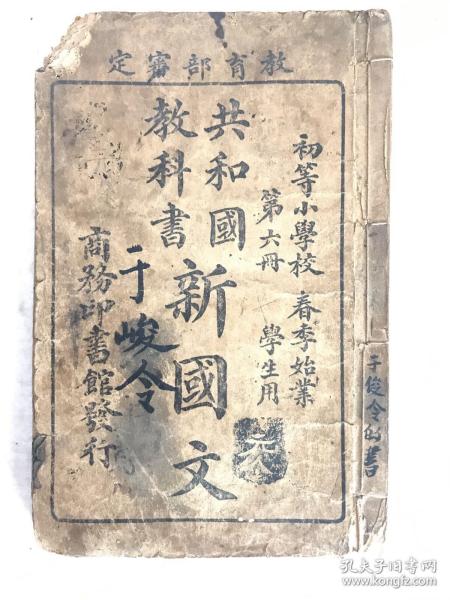 教育部審定
初等小學校 春季始業
第六冊 學生用
共和國
教科書
新國文
于峻令
商務印書館發行
于俊令的書
孔夫子旧书网
www.kongfz.com